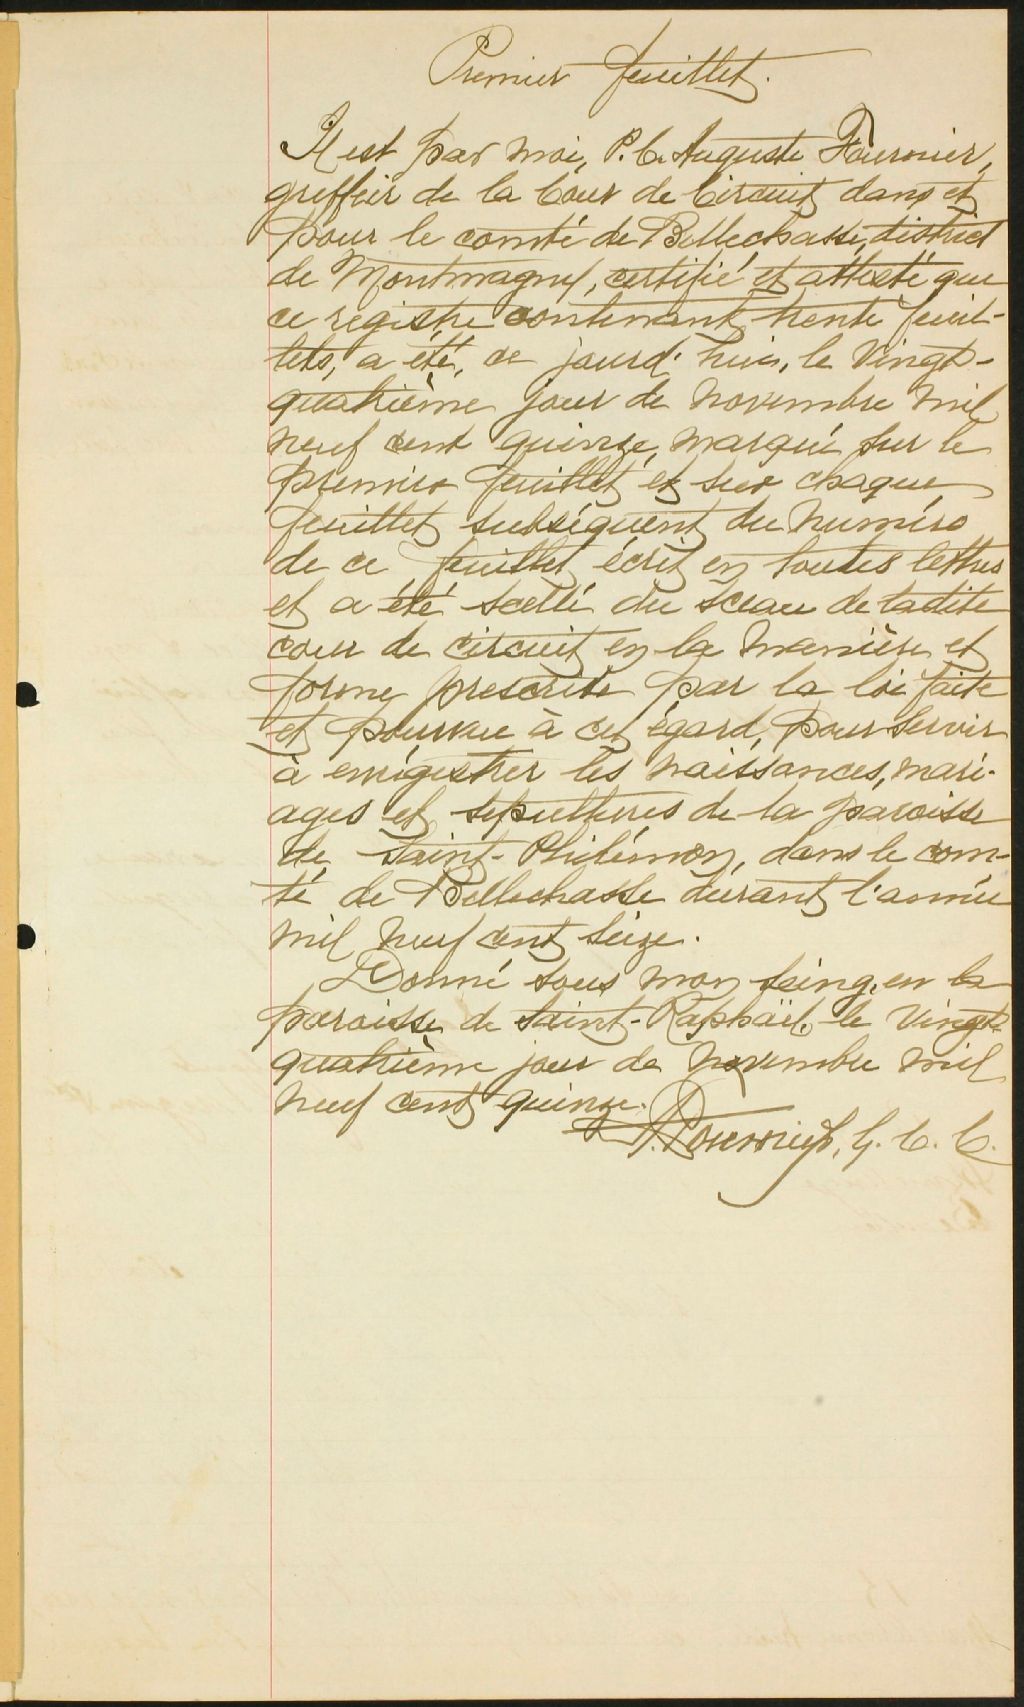 Premier feuillet.
Il est par moi, P. C. Auguste Fournier,
greffier de la Cour de Circuit dans et
pour le comté de Bellechasse, district
de Montmagny, certifié et attesté que
ce registre contenant trente feuil-
lets, a été, ce jourd'hui, le vingt-
quatrième jour de novembre mil
neuf cent quinze, marqué sur le
premier feuillet et sur chaque
feuillet subséquent du numéro
de ce feuillet écrit en toutes lettres
et a été scellé du sceau de ladite
cour de circuit en la manière et
forme prescrite par la loi faite
et pourvue à cet égard, pour servir
à enrégistrer les naissances, mari-
ages et sépultures de la paroisse
de Saint-Philémon, dans le com-
té de Bellechasse durant l'année
mil neuf cent seize.
Donné sous mon seing, en la
paroisse de Saint-Raphaël, le vingt-
quatrième jour de novembre mil
neuf cent quinze.
Fournier, G. C. C.